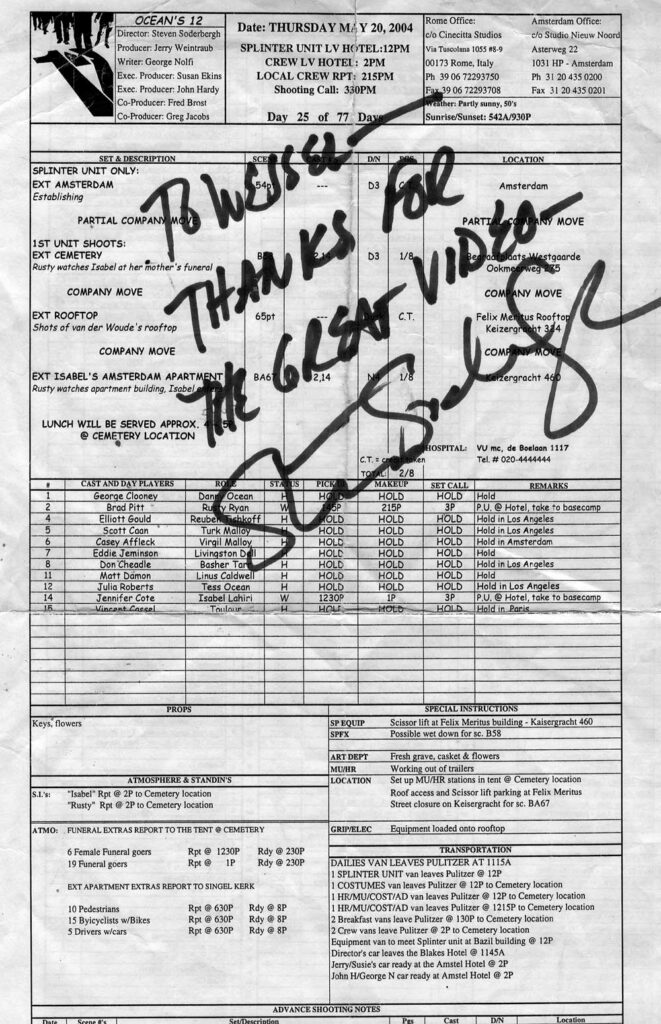 OCEAN'S 12
Director: Steven Soderbergh
Producer: Jerry Weintraub
Writer: George Nolfi
Exec. Producer: Susan Ekins
Exec. Producer: John Hardy
Co-Producer: Fred Brost
Co-Producer: Greg Jacobs
Date: THURSDAY MAY 20, 2004
SPLINTER UNIT LV HOTEL:12PM
CREW LV HOTEL: 2PM
LOCAL CREW RPT: 215PM
Shooting Call: 330PM
Day 25 of 77 Days
Rome Office:
c/o Cinecitta Studios
Via Tuscolana 1055 #8-9
00173 Rome, Italy
Ph 39 06 72293750
Fax 39 06 72293708
Amsterdam Office:
c/o Studio Nieuw Noord
Asterweg 22
1031 HP - Amsterdam
Ph 31 20 435 0200
Fax 31 20 435 0201
Weather: Partly sunny, 50's
Sunrise/Sunset: 542A/930P
TO WESSEL
THANKS FOR
THE GREAT VIDEO
SET & DESCRIPTION SCENE D/N PGS LOCATION
SPLINTER UNIT ONLY:
EXT AMSTERDAM 54pt --- D3 C.T. Amsterdam
Establishing
PARTIAL COMPANY MOVE PARTIAL COMPANY MOVE
1ST UNIT SHOOTS:
EXT CEMETERY 2,14 D3 1/8 Westgaarde
Rusty watches Isabel at her mother's funeral Ookmeerweg 275
COMPANY MOVE COMPANY MOVE
EXT ROOFTOP 65pt --- C.T. Felix Meritus Rooftop
Shots of van der Woude's rooftop Keizergracht 324
COMPANY MOVE COMPANY MOVE
EXT ISABEL'S AMSTERDAM APARTMENT BA67 2,14 1/8 Keizergracht 460
Rusty watches apartment building, Isabel
LUNCH WILL BE SERVED APPROX.
@ CEMETERY LOCATION
HOSPITAL: VU mc, de Boelaan 1117
C.T. = credit taken Tel. # 020-4444444
TOTAL: 2/8
# CAST AND DAY PLAYERS ROLE STATUS PICKUP MAKEUP SET CALL REMARKS
1 George Clooney Danny Ocean H HOLD HOLD HOLD Hold
2 Brad Pitt Rusty Ryan W 145P 215P 3P P.U. @ Hotel, take to basecamp
4 Elliott Gould Reuben Tishkoff H HOLD HOLD HOLD Hold in Los Angeles
5 Scott Caan Turk Malloy H HOLD HOLD HOLD Hold in Los Angeles
6 Casey Affleck Virgil Malloy H HOLD HOLD HOLD Hold in Amsterdam
7 Eddie Jeminson Livingston Dell H HOLD HOLD HOLD Hold
8 Don Cheadle Basher Tarr H HOLD HOLD HOLD Hold in Los Angeles
11 Matt Damon Linus Caldwell H HOLD HOLD HOLD Hold
12 Julia Roberts Tess Ocean H HOLD HOLD HOLD Hold in Los Angeles
14 Jennifer Cote Isabel Lahiri W 1230P 1P 3P P.U. @ Hotel, take to basecamp
15 Vincent Cassel Toulour H HOLD HOLD HOLD Hold in Paris
PROPS
Keys, flowers
SPECIAL INSTRUCTIONS
SP EQUIP Scissor lift at Felix Meritus building - Kaisergracht 460
SPFX Possible wet down for sc. B58
ART DEPT Fresh grave, casket & flowers
MU/HR Working out of trailers
LOCATION Set up MU/HR stations in tent @ Cemetery location
Roof access and Scissor lift parking at Felix Meritus
Street closure on Keisergracht for sc. BA67
GRIP/ELEC Equipment loaded onto rooftop
ATMOSPHERE & STANDIN'S
S.I.'s: "Isabel" Rpt @ 2P to Cemetery location
"Rusty" Rpt @ 2P to Cemetery location
ATMO: FUNERAL EXTRAS REPORT TO THE TENT @ CEMETERY
6 Female Funeral goers Rpt @ 1230P Rdy @ 230P
19 Funeral goers Rpt @ 1P Rdy @ 230P
EXT APARTMENT EXTRAS REPORT TO SINGEL KERK
10 Pedestrians Rpt @ 630P Rdy @ 8P
15 Byicyclists w/Bikes Rpt @ 630P Rdy @ 8P
5 Drivers w/cars Rpt @ 630P Rdy @ 8P
TRANSPORTATION
DAILIES VAN LEAVES PULITZER AT 1115A
1 SPLINTER UNIT van leaves Pulitzer @ 12P
1 COSTUMES van leaves Pulitzer @ 12P to Cemetery location
1 HR/MU/COST/AD van leaves Pulitzer @ 12P to Cemetery location
1 HR/MU/COST/AD van leaves Pulitzer @ 1215P to Cemetery location
2 Breakfast vans leave Pulitzer @ 130P to Cemetery location
2 Crew vans leave Pulitzer @ 2P to Cemetery location
Equipment van to meet Splinter unit at Bazil building @ 12P
Director's car leaves the Blakes Hotel @ 1145A
Jerry/Susie's car ready at the Amstel Hotel @ 2P
John H/George N car ready at Amstel Hotel @ 2P
ADVANCE SHOOTING NOTES
Date Scene #'s Set/Description Pgs Cast D/N Location